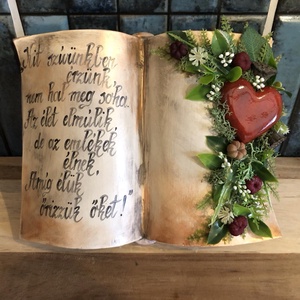 „Kit szívünkben
őrzünk,
nem hal meg soha.
Az élet elmúlik
de az emlékek
élnek,
Amíg élük
őrizzük őket!"